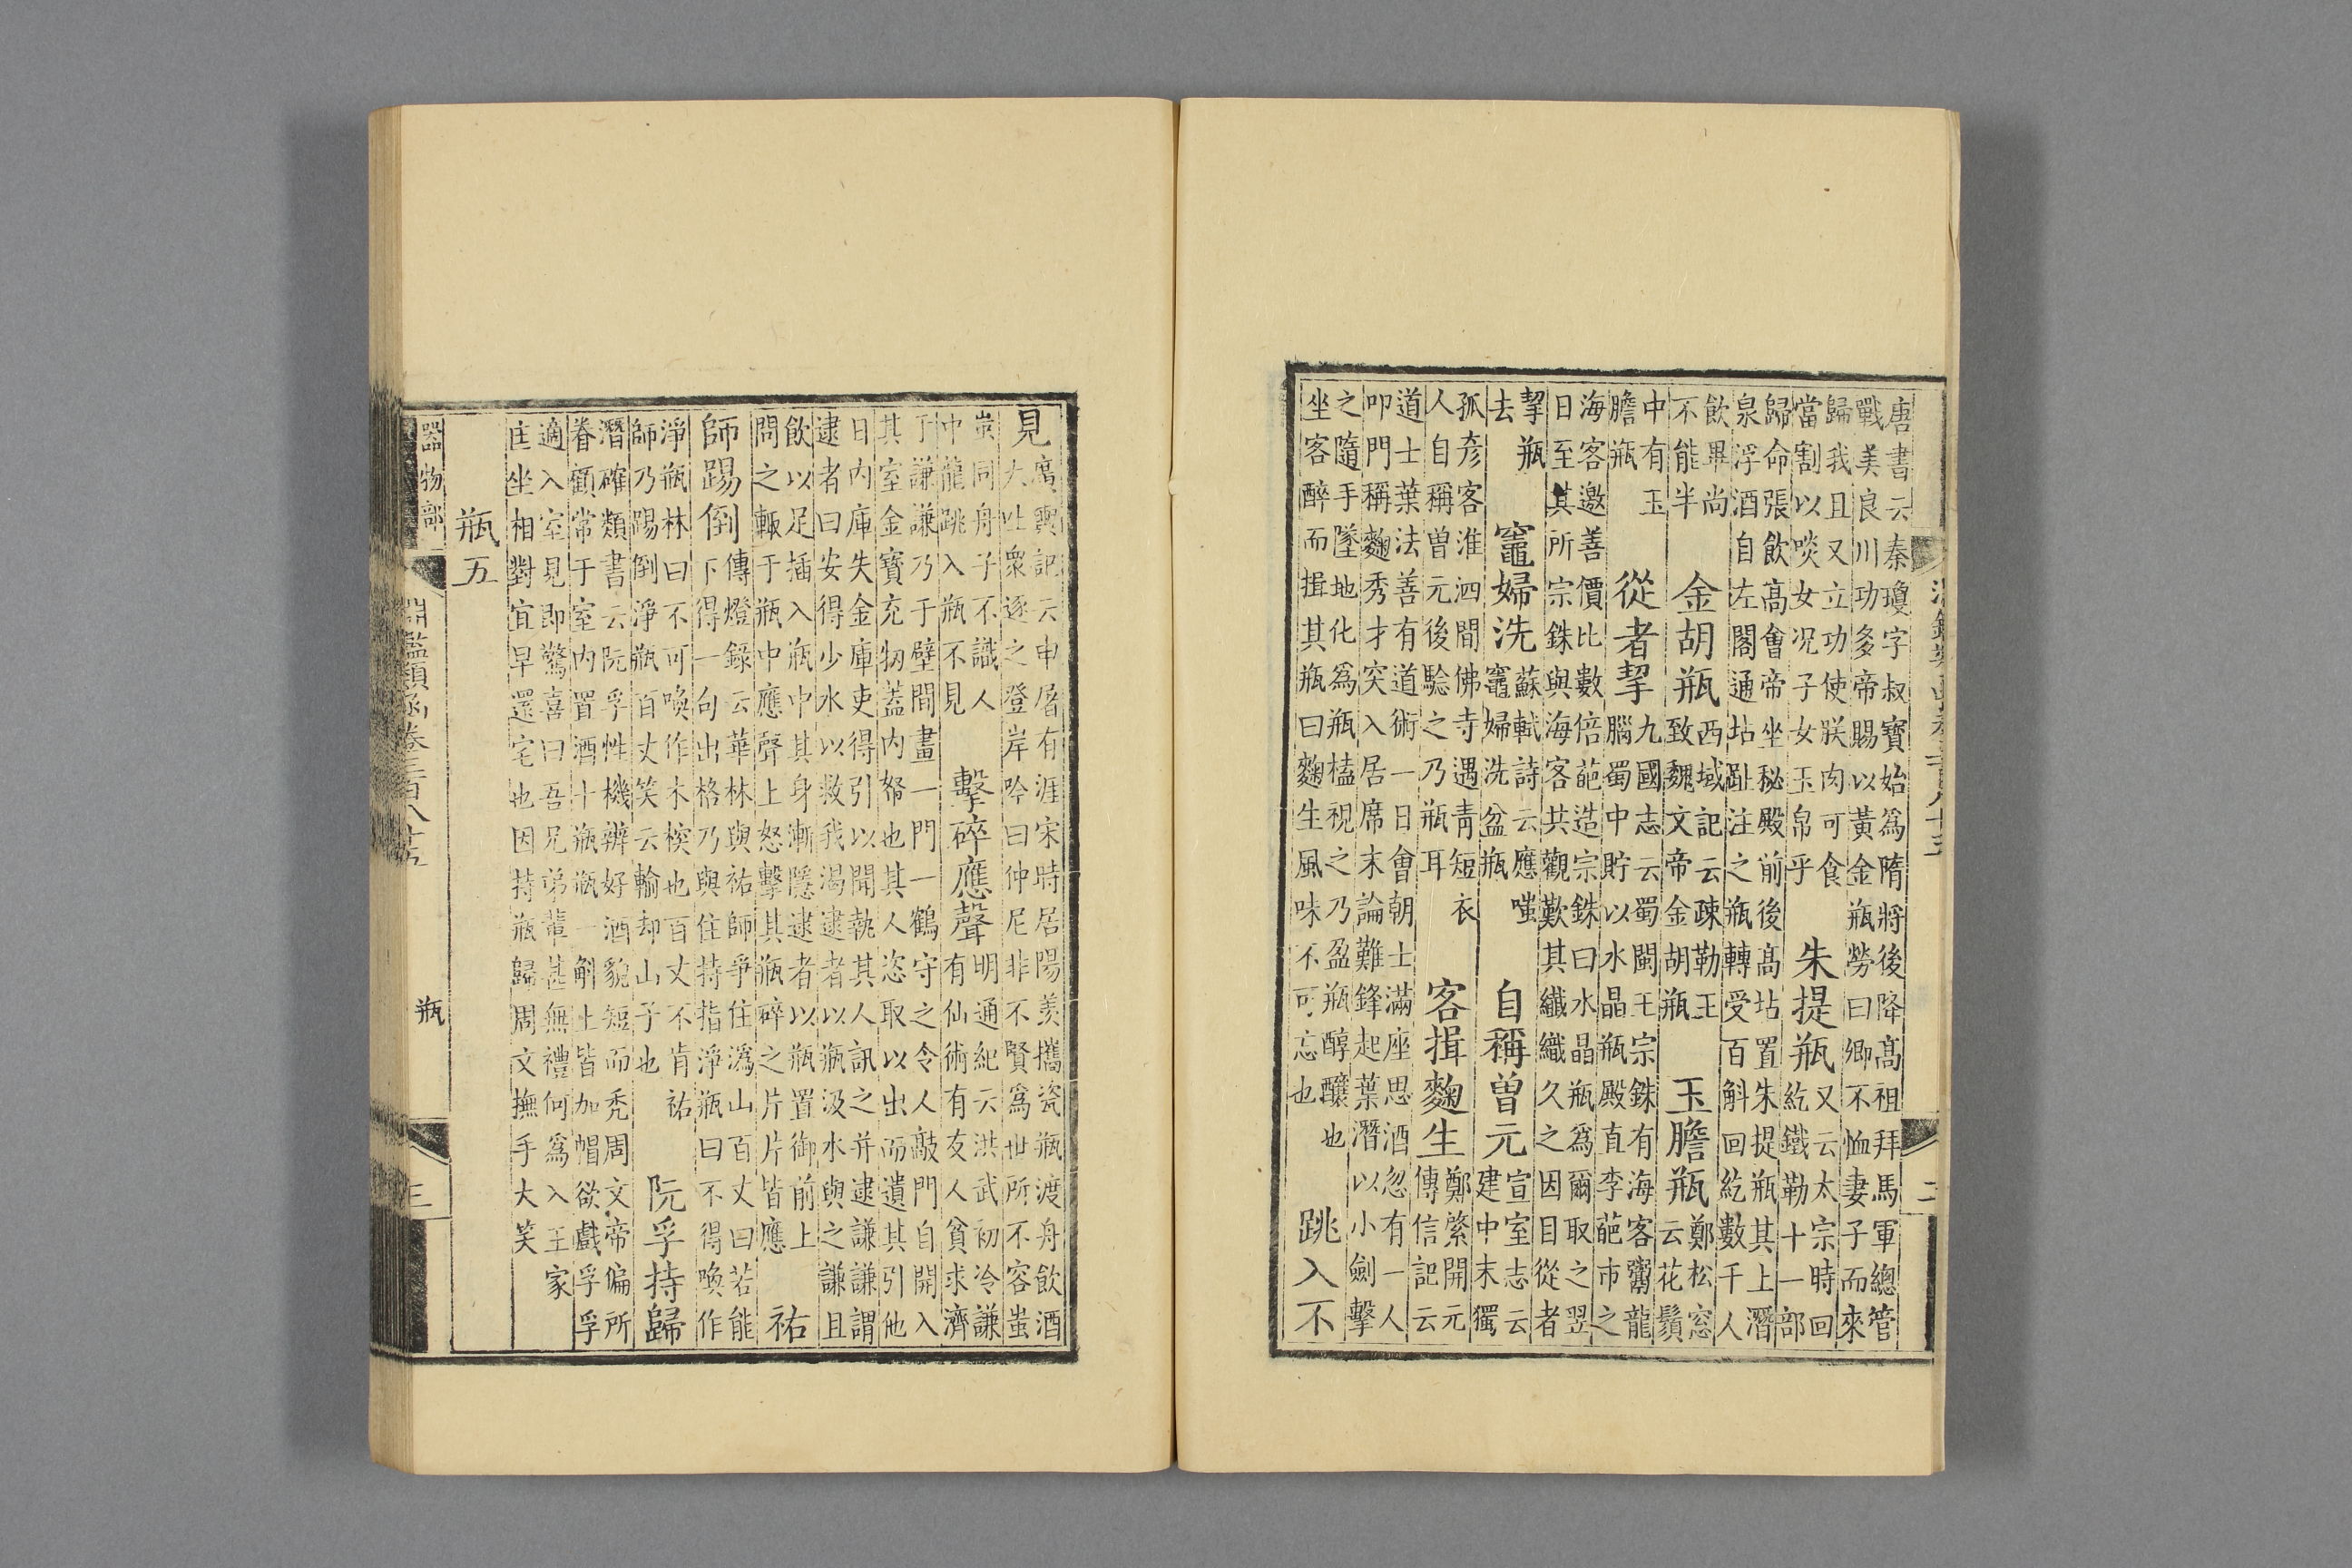 唐書云秦瓊字叔寶始爲隋將後降髙祖拜馬軍總管
戰美良川功多帝賜以黃金瓶勞曰卿不恤妻子而來
歸我且又立功使朕肉可食
當割以啖女況子女玉帛乎
朱提瓶
又云太宗時回
紇鐵勒十一部
歸命張飲髙會帝坐秘殿前後髙坫置朱提瓶其上潛
泉浮酒自左閣通坫趾注之瓶轉受百斛回紇數千人
飲畢尚
不能半
金胡瓶
西域記云疎勒王
致魏文帝金胡瓶
玉膽瓶
鄭松窓
云花鬚
中有玉
膽瓶
從者挈
九國志云蜀闕王宗銖有海客鬻龍
腦蜀中貯以水晶瓶殿直李葩市之
海客邀善價比數倍葩造宗銖曰水晶瓶爲爾取之翌
日至其所宗銖與海客共觀歎其纖纖久之因目從者
挈瓶
去
竈婦洗
蘇軾詩云應嗤
竈婦洗盆瓶
自稱曽元
宣室志云
建中末獨
孤彦客淮泗間佛寺遇靑短衣
人自稱曽元後驗之乃瓶耳
客揖麴生
鄭棨開元
傳信記云
道士葉法善有道術一日會朝士滿座思酒忽有一人
叩門稱麴秀才突入居席末論難鋒起葉潛以小劍擊
之隨手墜地化爲瓶榼視之乃盈瓶醇釀也
坐客醉而揖其瓶曰麴生風味不可忘也
跳入不
見
廣輿記云申屠有涯宋時居陽羡攜瓷瓶渡舟飲酒
大吐衆逐之登岸吟曰仲尼非不賢爲世所不容蚩
蚩同舟子不識人
中龍跳入瓶不見
擊碎應聲
明通紀云洪武初冷謙
有仙術有友人貧求濟
于謙謙乃于壁間畫一門一鶴守之令人敲門自開入
其室金寶充牣蓋内帑也其人恣取以出而遺其引他
日内庫失金庫吏得引以聞執其人訊之并逮謙謙謂
逮者曰安得少水以救我渴逮者以瓶汲水與之謙且
飲以足插入瓶中其身漸隱逮者以瓶置御前上
問之輒于瓶中應聲上怒擊其瓶碎之片片皆應
祐
師踢倒
傳燈錄云華林與祐師爭住潙山百丈曰若能
下得一句出格乃與住持指淨瓶曰不得喚作
淨瓶林曰不可喚作木㮇也百丈不肯祐
師乃踢倒淨瓶百丈笑云輸却山子也
阮孚持歸
潛確類書云阮孚性機辨好酒貌短而秃周文帝偏所
眷顧常于室内置酒十瓶瓶一斛上皆加帽欲戲孚孚
適入室見即驚喜曰吾兄弟輩甚無禮何爲入王家
匡坐相對宜早還宅也因持瓶歸周文撫手大笑
瓶五
器物部
淵鑑類函卷三百八十五
瓶
三